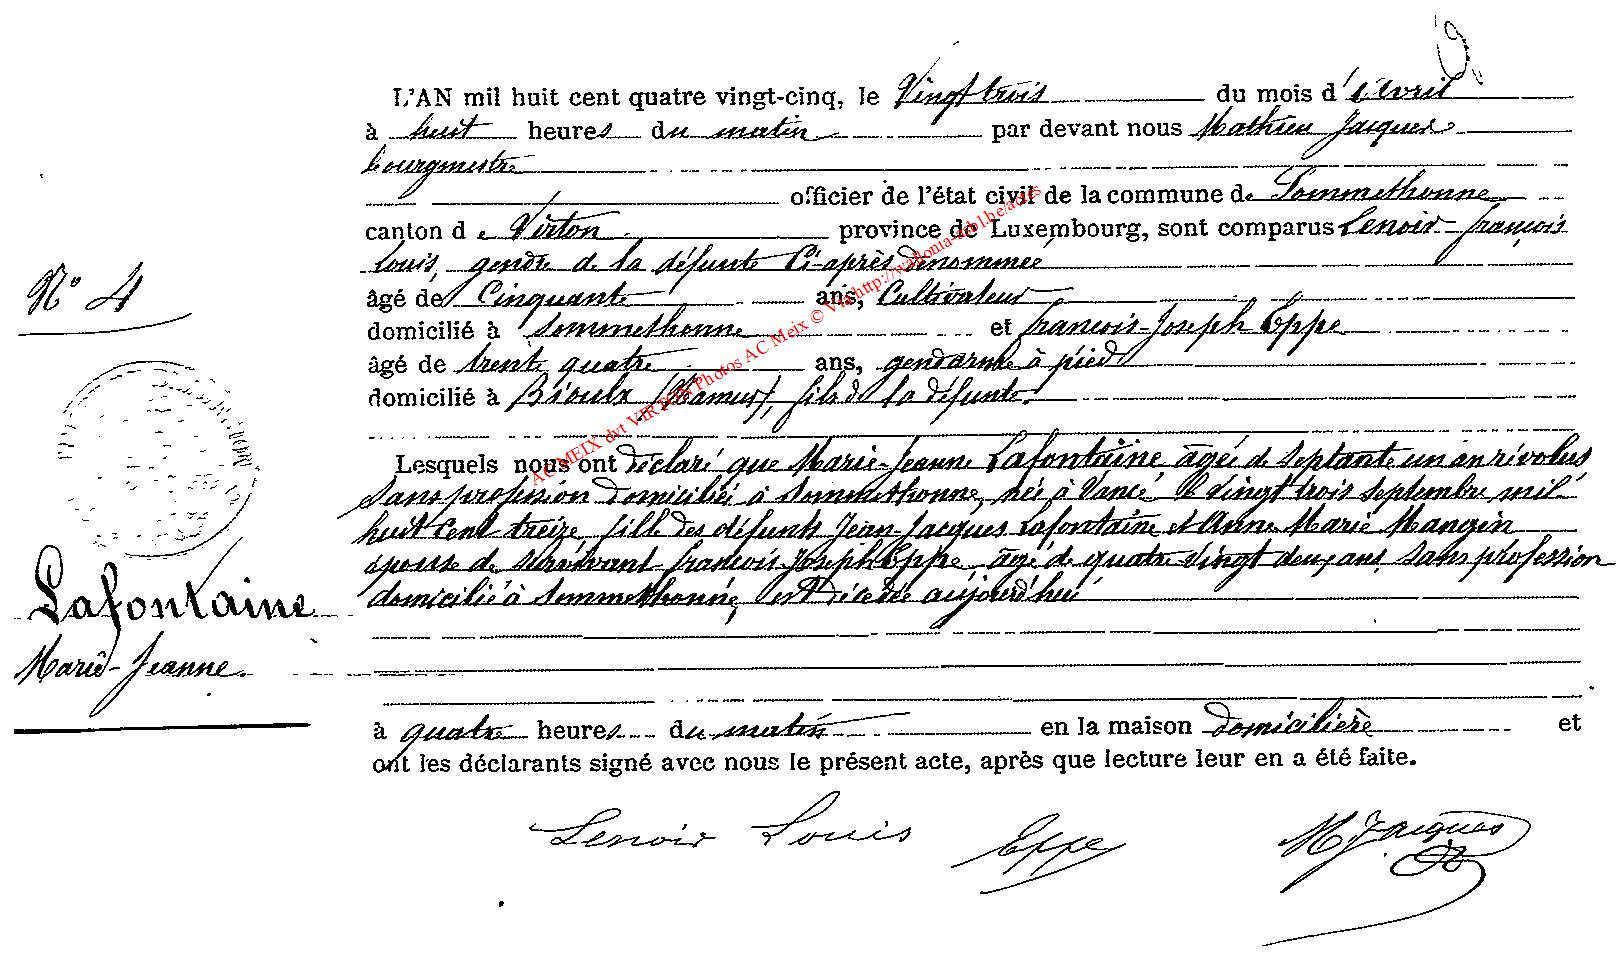 L'AN mil huit cent quatre vingt-cinq, le Vingt trois du mois d'avril
à huit heures du matin par devant nous Mathieu Jacques
bourgmestre
officier de l'état civil de la commune de Sommethonne
canton de Virton province de Luxembourg, sont comparus Lenoir François
Louis, gendre de la défunte ci-après dénommée
âgé de Cinquante ans, Cultivateur
domicilié à Sommethonne et François-Joseph Eppe
âgé de trent quatre ans, gendarme à pied
domicilié à Bioulx (Namur), fils d la défunte.
Lesquels nous ont déclaré que Marie-Jeanne Lafontaine agée de septante un an révolus
sans profession domiciliée à Sommethonne, née à Vance le vingt trois septembre mil
huit cent treize, fille des défunts Jean-Jacques Lafontaine et Anne Marie Mangin
épouse de survivant François-Joseph Eppe âgé de quatre vingt deux ans, sans profession
domicilié à Sommethonne, est décédée aujourd'hui
à quatre heures du matin en la maison domicilière et
ont les déclarants signé avec nous le présent acte, après que lecture leur en a été faite.
Lenoir Louis Eppe M Jacques
N° 4
Lafontaine
Marie-Jeanne.
AC MEIX dvt VIRTON Photos AC Meix © Via http://wallonia-bib1he/actes